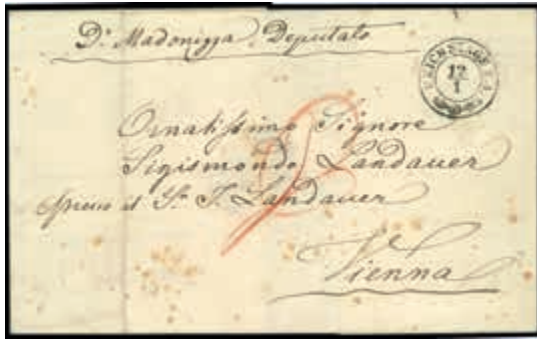 Dr. Madonizza Deputato
REICHSTAGS
12
1
Ornatissimo Signore
Sigismondo Landauer
presso il Sr. J. Landauer
Vienna